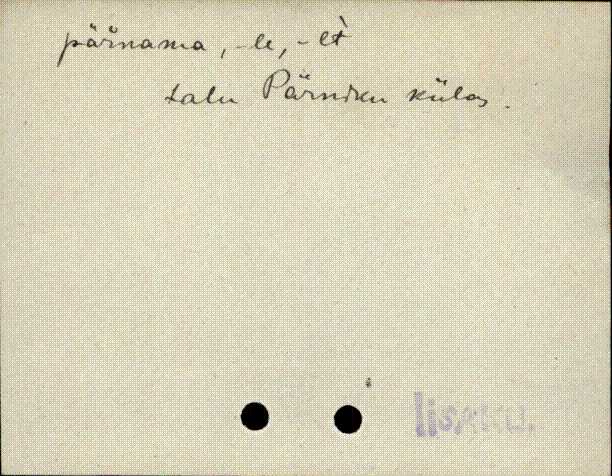 pärnama, -le, -lt̀
talu Pärniku külas.
Iisaku.